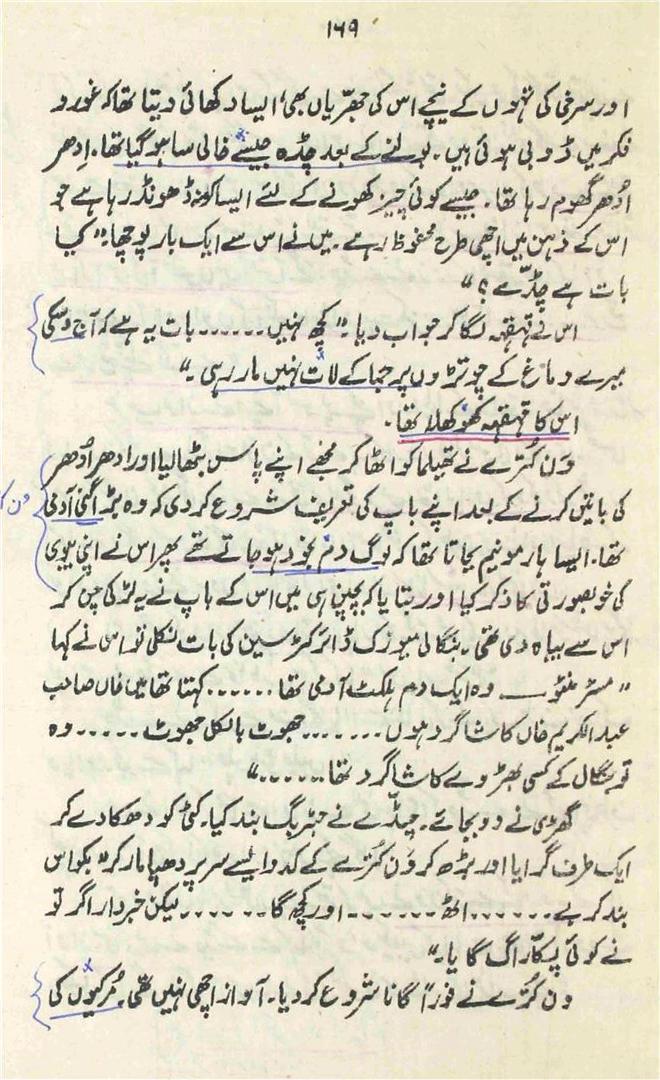 ۱۶۹
اور سرخی کی تہوں کے نیچے اس کی جھریاں بھی ایسا دکھائی دیتا تھا کہ غور و
فکر میں ڈوبی ہوئی ہیں۔ بولنے کے بعد چڈہ جیسے خالی سا ہو گیا تھا۔ اِدھر
اُدھر گھوم رہا تھا۔ جیسے کوئی چیز کھونے کے لئے ایسا کونہ ڈھونڈ رہا ہے جو
اس کے ذہن میں اچھی طرح محفوظ رہے۔ میں نے اس سے ایک بار پوچھا۔" کیا
بات ہے چڈّے؟"
اس نے قہقہہ لگا کر جواب دیا۔" کچھ نہیں...... بات یہ ہے کہ آج وسکی
میرے دماغ کے چوتڑوں پر جما کے لات نہیں مار رہی۔"
اس کا قہقہہ کھوکھلا تھا۔
وَن کُترے نے تھیلما کو اٹھا کر مجھے اپنے پاس بٹھا لیا اور ادھر اُدھر
کی باتیں کرنے کے بعد اپنے باپ کی تعریف شروع کر دی کہ وہ بڑا گنی آدمی
تھا۔ ایسا ہارمونیم بجاتا تھا کہ لوگ دم بخود ہو جاتے تھے پھر اس نے اپنی بیوی
کی خوبصورتی کا ذکر کیا اور بتایا کہ بچپن ہی میں اس کے باپ نے یہ لڑکی چن کر
اس سے بیاہ دی تھی۔ بنگالی میوزک ڈائرکٹر سین کی بات نکلی تو اس نے کہا
"مسٹر منٹو ــــ وہ ایک دم ہلکٹ آدمی تھا ...... کہتا تھا میں خاں صاحب
عبدالکریم خاں کا شاگرد ہوں ....... جھوٹ بالکل جھوٹ ..... وہ
تو بنگال کے کسی بھڑوے کا شاگرد تھا......"
گھڑی نے دو بجائے۔ چڈّے نے جٹربگ بند کیا۔ کٹی کو دھکا دے کر
ایک طرف گرایا اور بڑھ کر وَن کُترے کے کدو ایسے سر پر دھپا مار کر" بکواس
بند کر بے ...... اٹھ ....... اور کچھ گا ....... لیکن خبردار اگر تو
نے کوئی پکّا راگ گایا۔"
ون کُترے نے فوراً گانا شروع کر دیا۔ آواز اچھی نہیں تھی۔ مُرکیوں کی